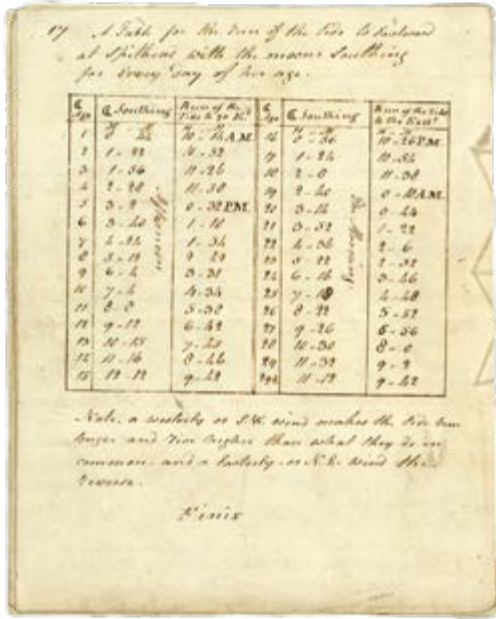 17 A Table for the Run of the Tide to Eastward
at Spithead with the moons Southing
for Every day of her age.
☾ Age ☾ Southing Run of the Tide to ye Et. ☾ Age ☾ Southing Run of the Tide to the East
1 0-44 10-14 A.M. 16 0-56 10-26 P.M.
2 1-22 10-52 17 1-24 10-54
3 1-56 11-26 18 2-0 11-30
4 2-20 11-50 19 2-40 0-10 A.M.
5 3-2 0-32 P.M. 20 3-14 0-44
6 3-40 1-10 21 3-52 1-22
7 4-24 1-54 22 4-36 2-6
8 5-22 2-52
9 6-4 3-34 24 6-16 3-46
10 7-4 4-34 25 7-18 4-48
11 8-0 5-30 26 8-22 5-52
12 9-12 6-42 27 9-26 6-56
13 10-18 28 10-30 8-0
14 11-16 8-46 29 11-32 9-2
15 12-12 9-42 11-12 9-42
Afternoon
In Morning
Note, a westerly or S.W. wind makes the Tide run
longer and rise higher than what they do in
common, and a Easterly or N.E. wind the
reverse.
Finis